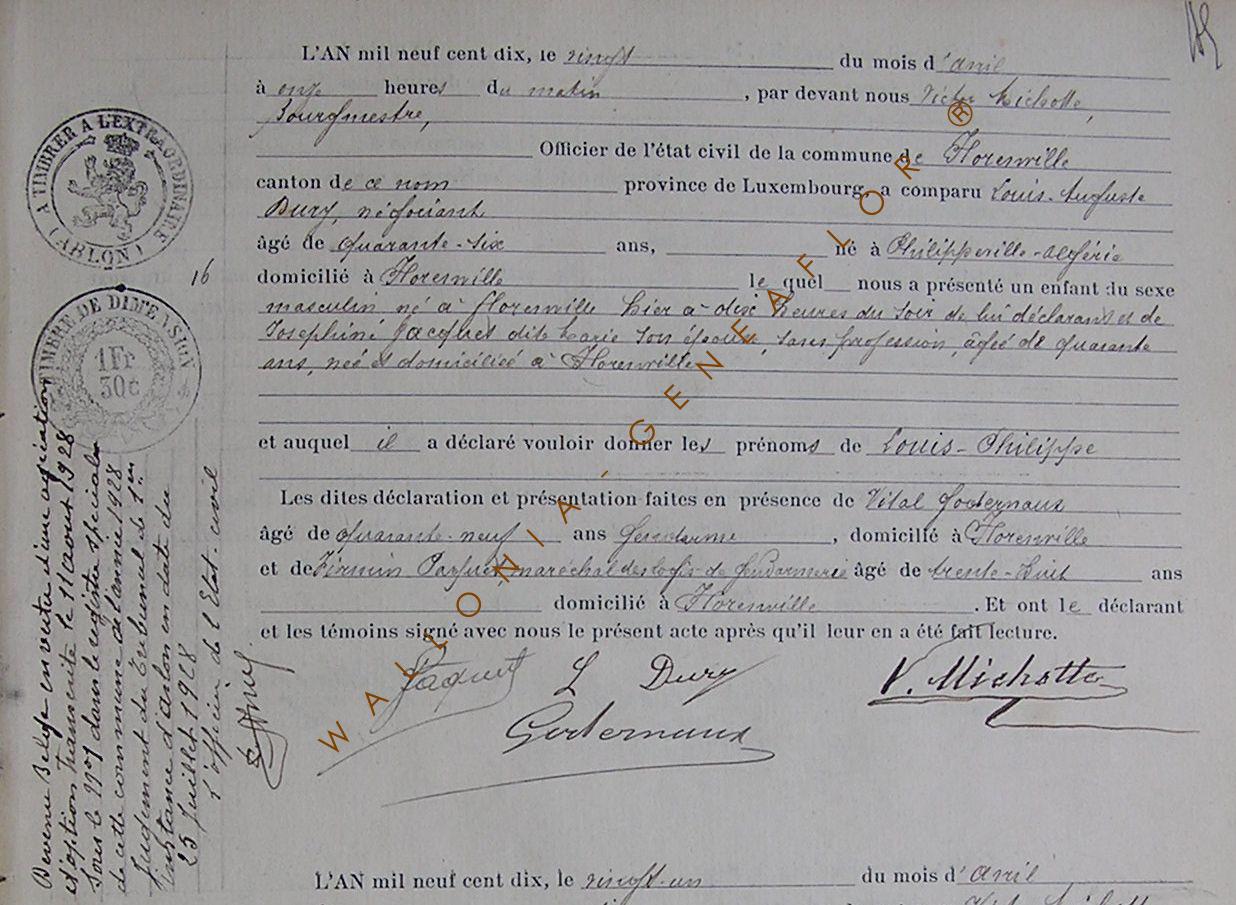 L'AN mil neuf cent dix, le vingt du mois d'avril
à onze heures du matin, par devant nous Victor Michotte,
Bourgmestre,
Officier de l'état civil de la commune de Florenville
canton de ce nom province de Luxembourg, a comparu Louis-Auguste
Dury, négociant
âgé de quarante-six ans, né à Philippeville-Algérie
domicilié à Florenville lequel nous a présenté un enfant du sexe
masculin né à Florenville hier à dix heures du soir de lui déclarant et de
Joséphine Jacques dite Marie son épouse, sans profession, âgée de quarante
ans, née et domiciliée à Florenville
et auquel il a déclaré vouloir donner les prénoms de Louis-Philippe
Les dites déclaration et présentation faites en présence de Vital Godernaux
âgé de quarante-neuf ans Gendarme, domicilié à Florenville
et de Firmin Paquet, maréchal des logis de Gendarmerie âgé de trente-huit ans
domicilié à Florenville. Et ont le déclarant
et les témoins signé avec nous le présent acte après qu'il leur en a été fait lecture.
Paquet L Dury V. Michotte
Godernaux
L'AN mil neuf cent dix, le vingt-un du mois d'avril
A TIMBRER A L'EXTRAORDINAIRE
(ARLON)
16
TIMBRE DE DIMENSION
1Fr
30c
Devenu Belge en vertu d'une déclaration
d'option transcrite le 11 août 1928
sous le n° 1 dans le registre spécial
de cette commune de l'année 1928
Jugement du Tribunal de 1re
instance d'Arlon en date du
25 Juillet 1928
L'officier de l'Etat-civil
WALLONIA-GENEAFLOR®